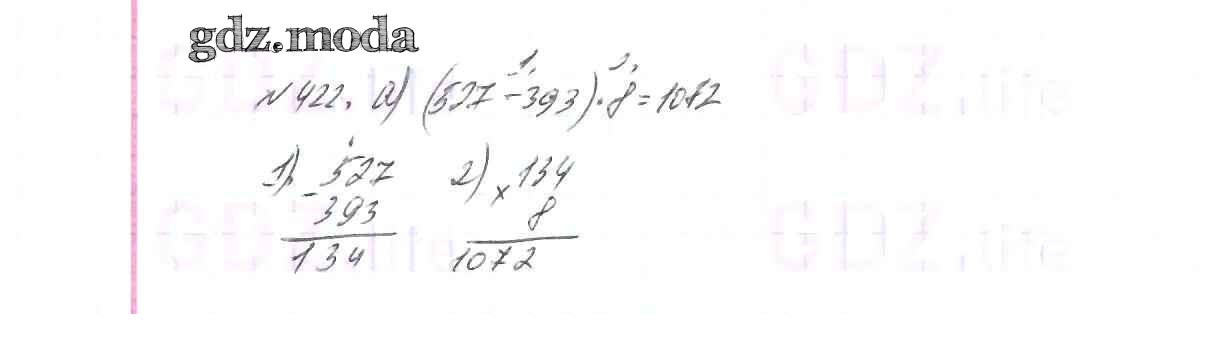 gdz.moda
GDZ.life GDZ.life
1. 2.
№422. а) (527-393)·8=1072
1) 527 2) 134
- 393 × 8
134 1072
GDZ.life GDZ.life